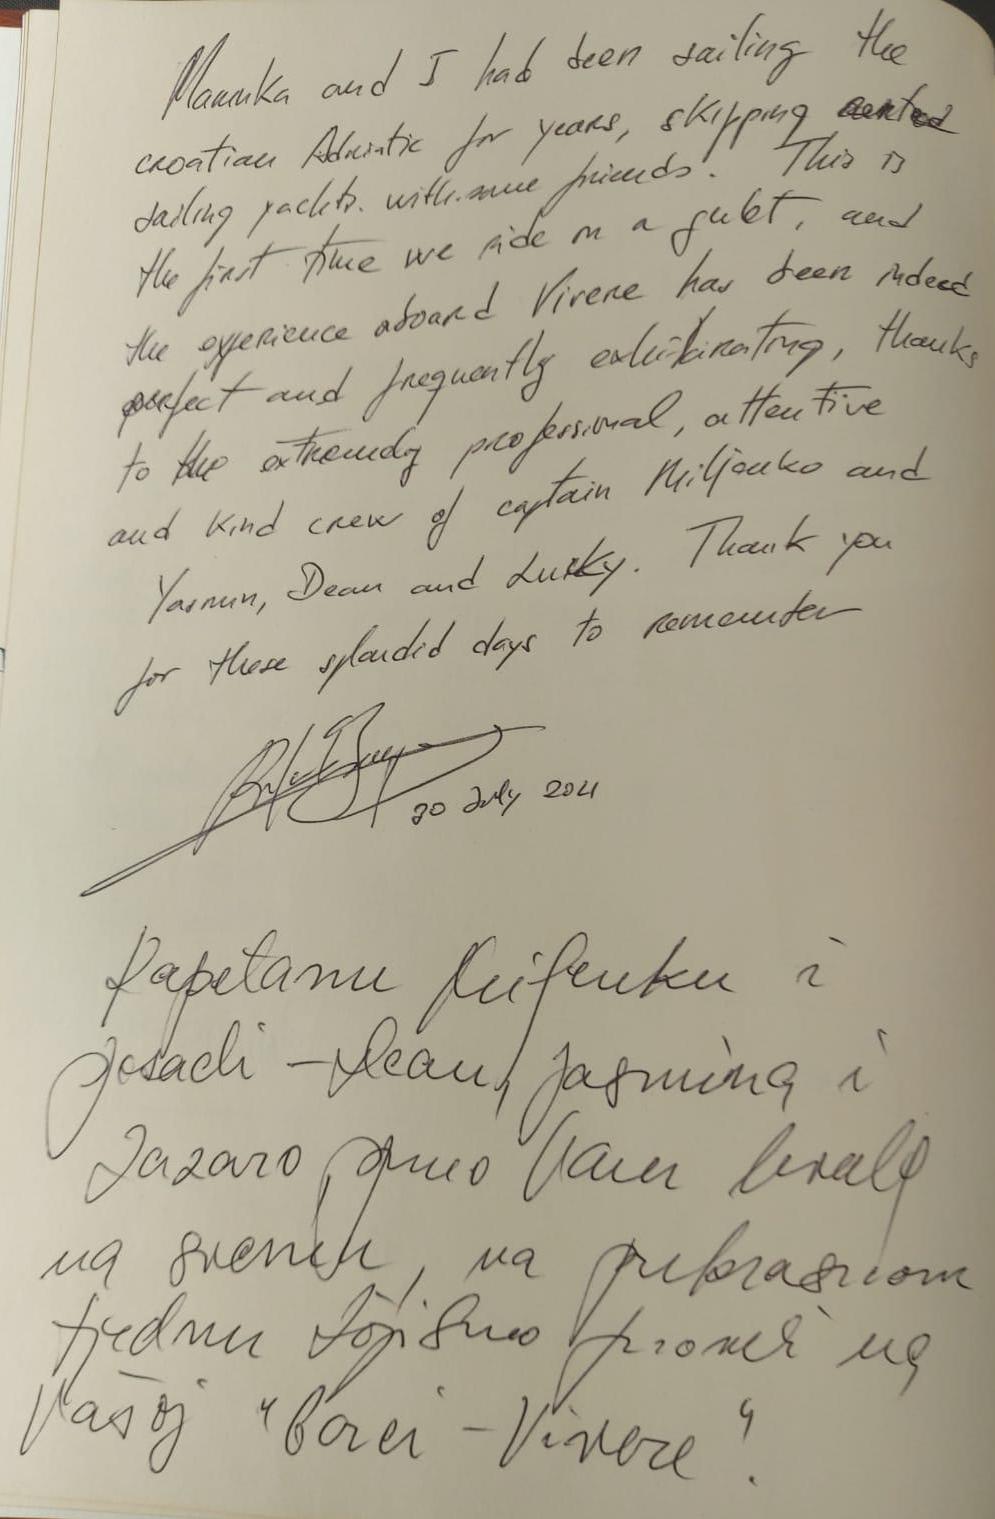 Marinka and I had been sailing the
croatian Adriatic for years, skipping
sailing yachts with some friends. This is
the first time we ride on a gulet, and
the experience aboard Vivere has been indeed
perfect and frequently exhilirating, thanks
to the extremely professional, attentive
and kind crew of captain Miljenko and
Yasmin, Dean and Lucky. Thank you
for these splendid days to remember
30 July 2021
Kapetanu Miljenku i
posadi – Dean, Jasmina i
Lazaro, puno Vam hvala
na svemu, na prekrasnom
tjednu što smo proveli na
Vašoj "barci – Vivere".